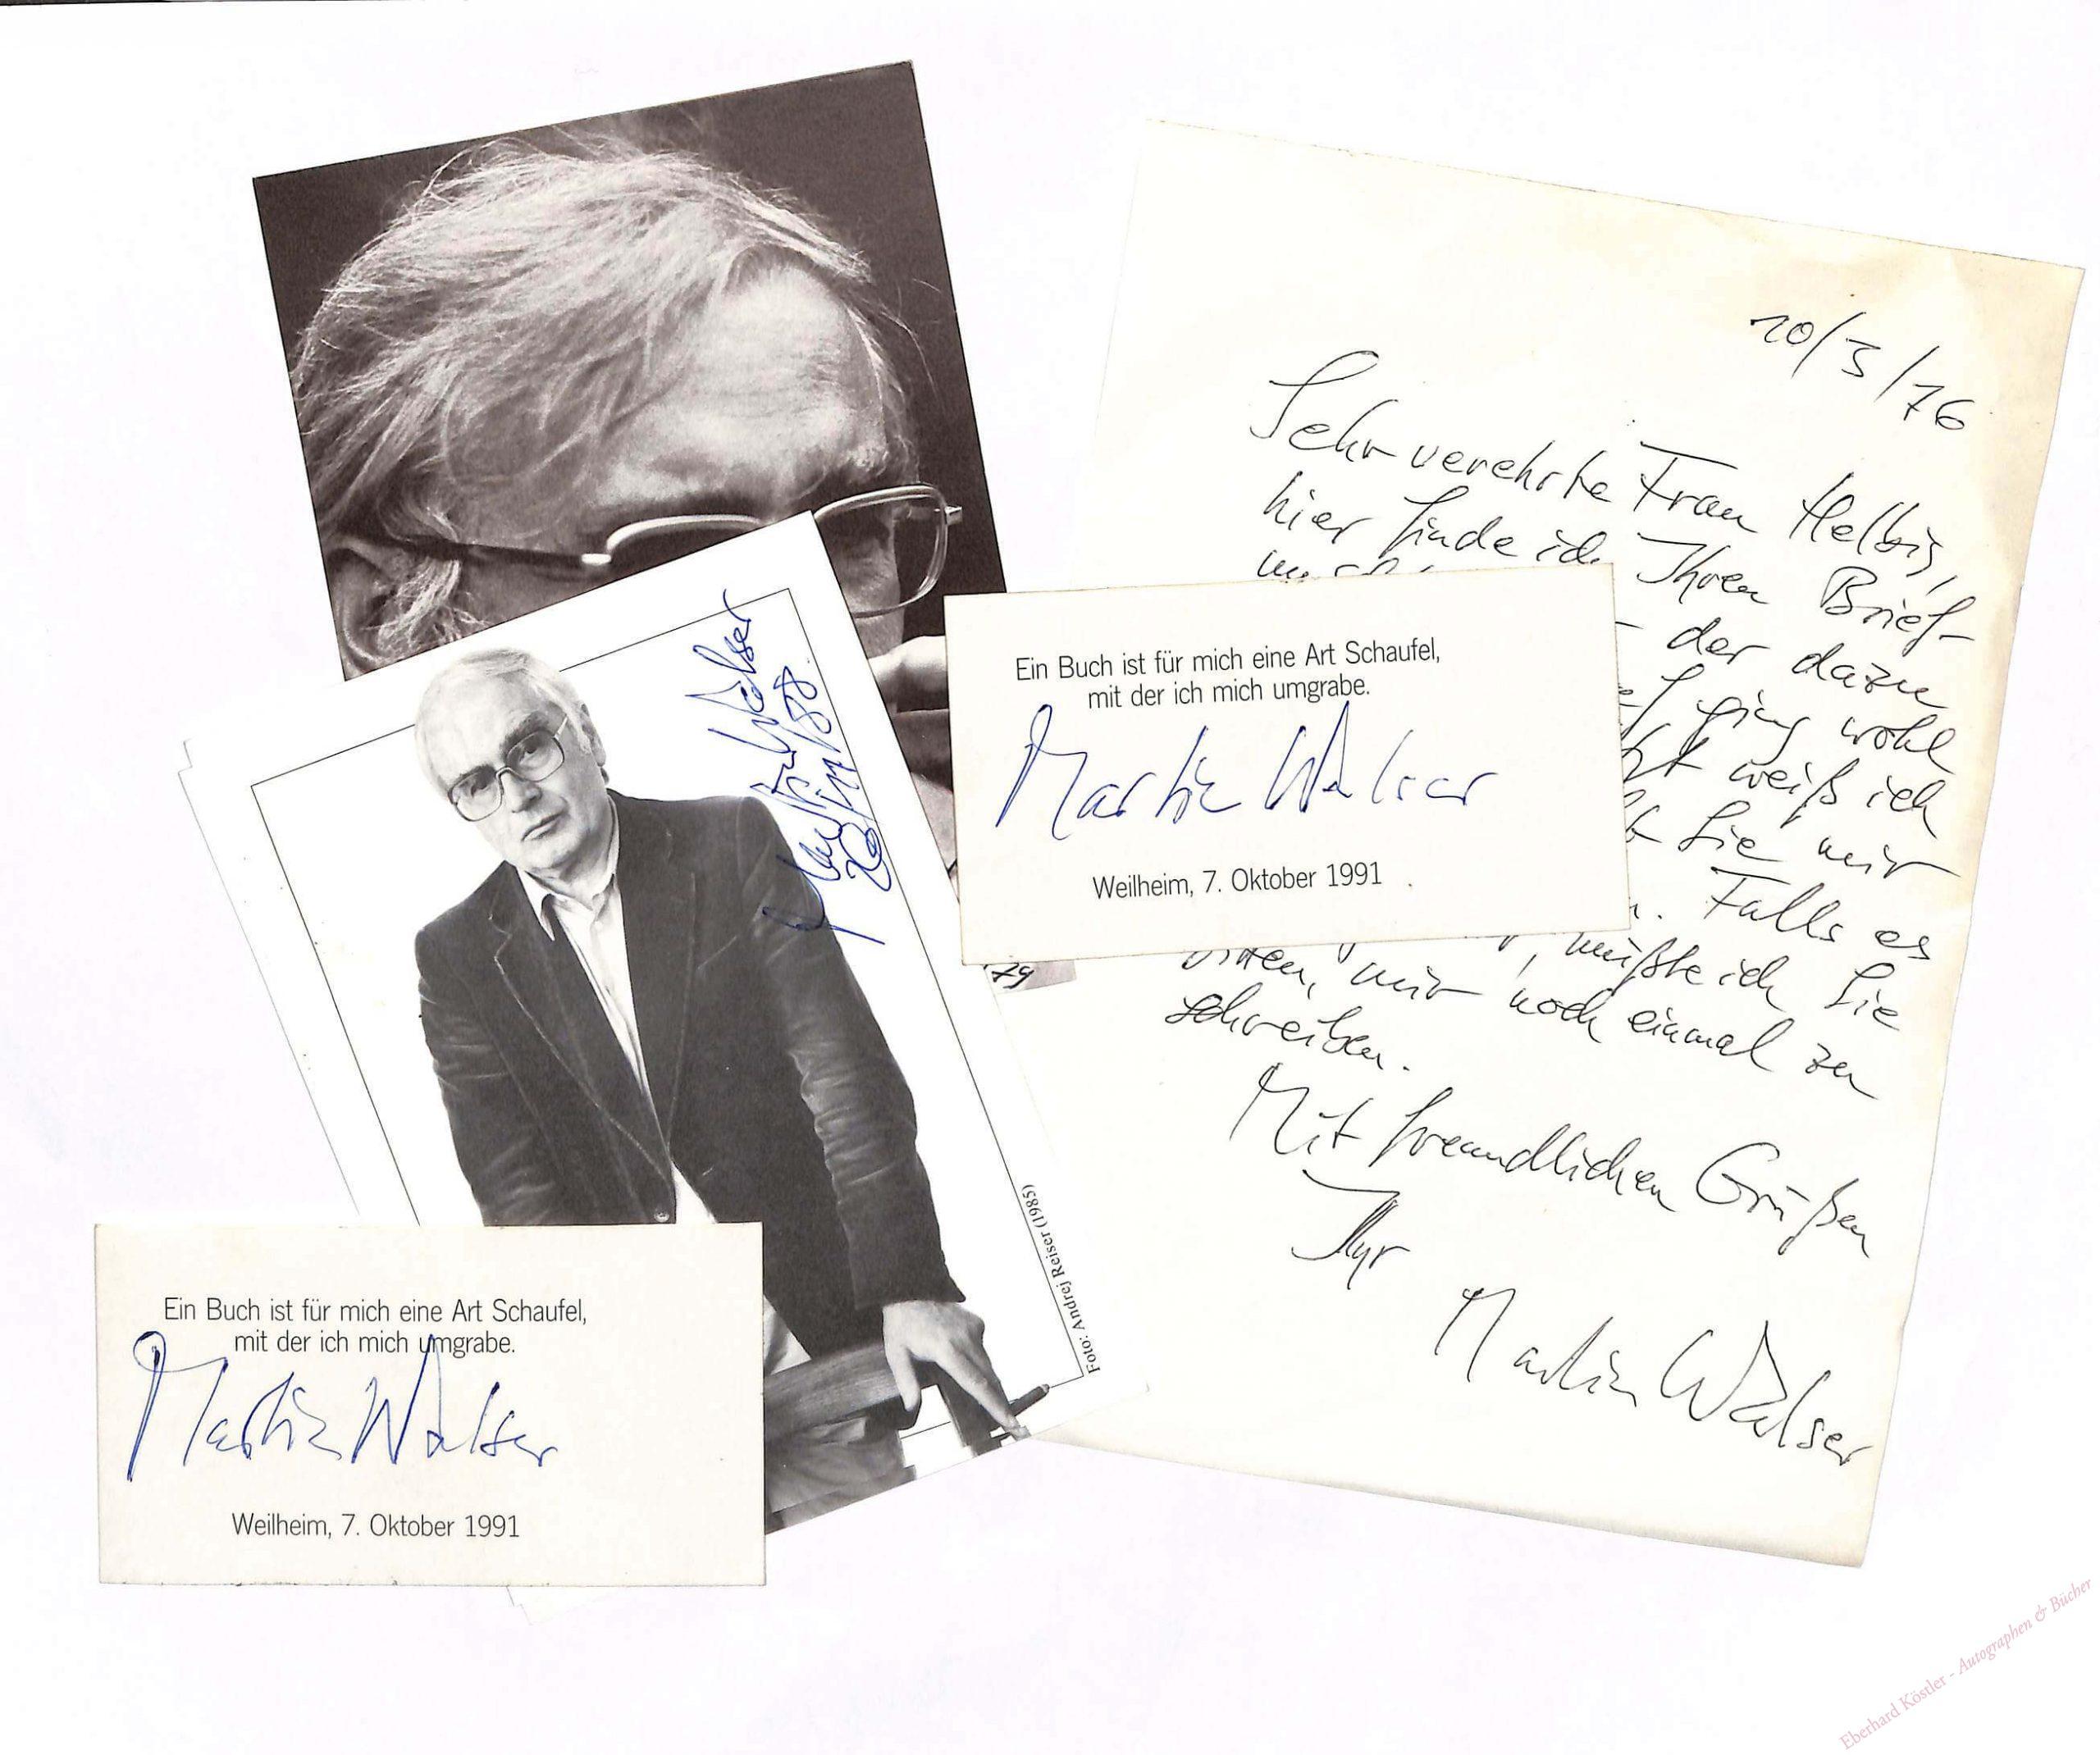 Martin Walser
79
Foto: Andrej Reiser (1985)
Ein Buch ist für mich eine Art Schaufel,
mit der ich mich umgrabe.
Martin Walser
Weilheim, 7. Oktober 1991
Ein Buch ist für mich eine Art Schaufel,
mit der ich mich umgrabe.
Martin Walser
Weilheim, 7. Oktober 1991
20/3/76
Sehr verehrte Frau Helbig,
hier finde ich Ihren Brief-
der dazu
ging wohl
weiß ich
Sie mir
Falls es
müßte ich Sie
bitten, mir noch einmal zu
schreiben.
Mit freundlichen Grüßen
Ihr
Martin Walser
Eberhard Köstler - Autographen & Bücher